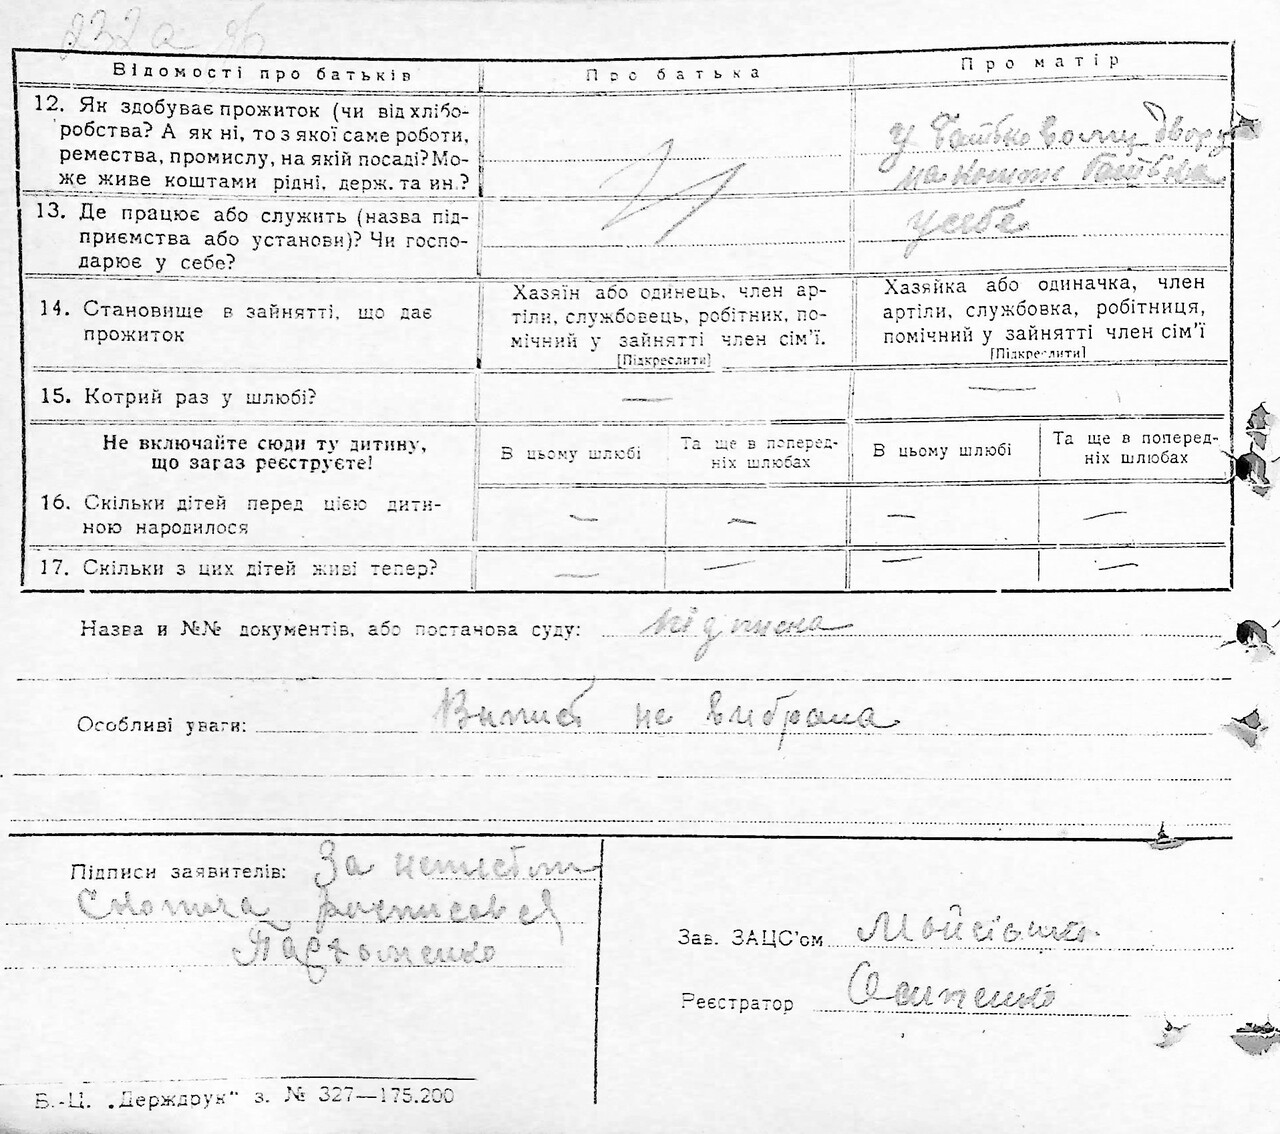 232а зв
Відомості про батьків
Про батька
Про матір
12. Як здобуває прожиток (чи від хлібо-
робства? А як ні, то з якої саме роботи,
ремества, промислу, на якій посаді? Мо-
же живе коштами рідні, держ. та ин.?
у батьковому дворі
на кошти батька
13. Де працює або служить (назва під-
приємства або установи)? Чи госпо-
дарює у себе?
у себе
14. Становище в зайнятті, що дає
прожиток
Хазяїн або одинець, член ар-
тіли, службовець, робітник, по-
мічний у зайнятті член сім'ї.
[Підкреслити]
Хазяйка або одиначка, член
артіли, службовка, робітниця,
помічний у зайнятті член сім'ї
[Підкреслити]
15. Котрий раз у шлюбі?
—
—
Не включайте сюди ту дитину,
що загаз реєструєте!
В цьому шлюбі
Та ще в поперед-
ніх шлюбах
В цьому шлюбі
Та ще в поперед-
ніх шлюбах
16. Скільки дітей перед цією дити-
ною народилося
— — — —
17. Скільки з цих дітей живі тепер?
— — — —
Назва и №№ документів, або постанова суду: підписка
Особливі уваги: Випись не вибрана
Підписи заявителів: За
росписався
Пархоменко
Зав. ЗАЦС'ом
Реєстратор Осипенко
Б.-Ц. „Держдрук" з. № 327—175.200